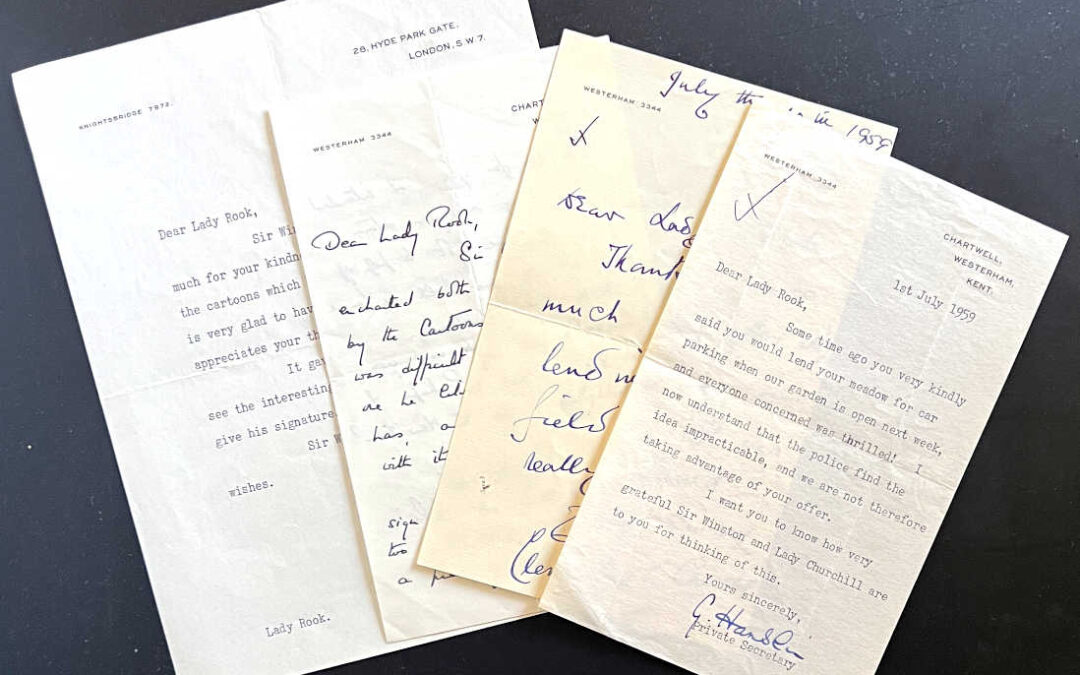 28, HYDE PARK GATE,
LONDON, S W 7.
KNIGHTSBRIDGE 7972.
Dear Lady Rook,
Sir Win
much for your kindn
the cartoons which
is very glad to hav
appreciates your th
It ga
see the interesting
give his signature.
Sir W
wishes.
Lady Rook.
CHART
W
WESTERHAM, 3344
Dear Lady Rook,
Si
enchanted both
by the Cartoons
was difficult
has, a
with it
sign
two
a
WESTERHAM, 3344
July 1959
Dear Lady
Thank
much
lend
field
really
Clem
WESTERHAM, 3344
CHARTWELL,
WESTERHAM,
KENT.
1st July 1959
Dear Lady Rook,
Some time ago you very kindly
said you would lend your meadow for car
parking when our garden is open next week,
and everyone concerned was thrilled! I
now understand that the police find the
idea impracticable, and we are not therefore
taking advantage of your offer.
I want you to know how very
grateful Sir Winston and Lady Churchill are
to you for thinking of this.
Yours sincerely,
Private Secretary